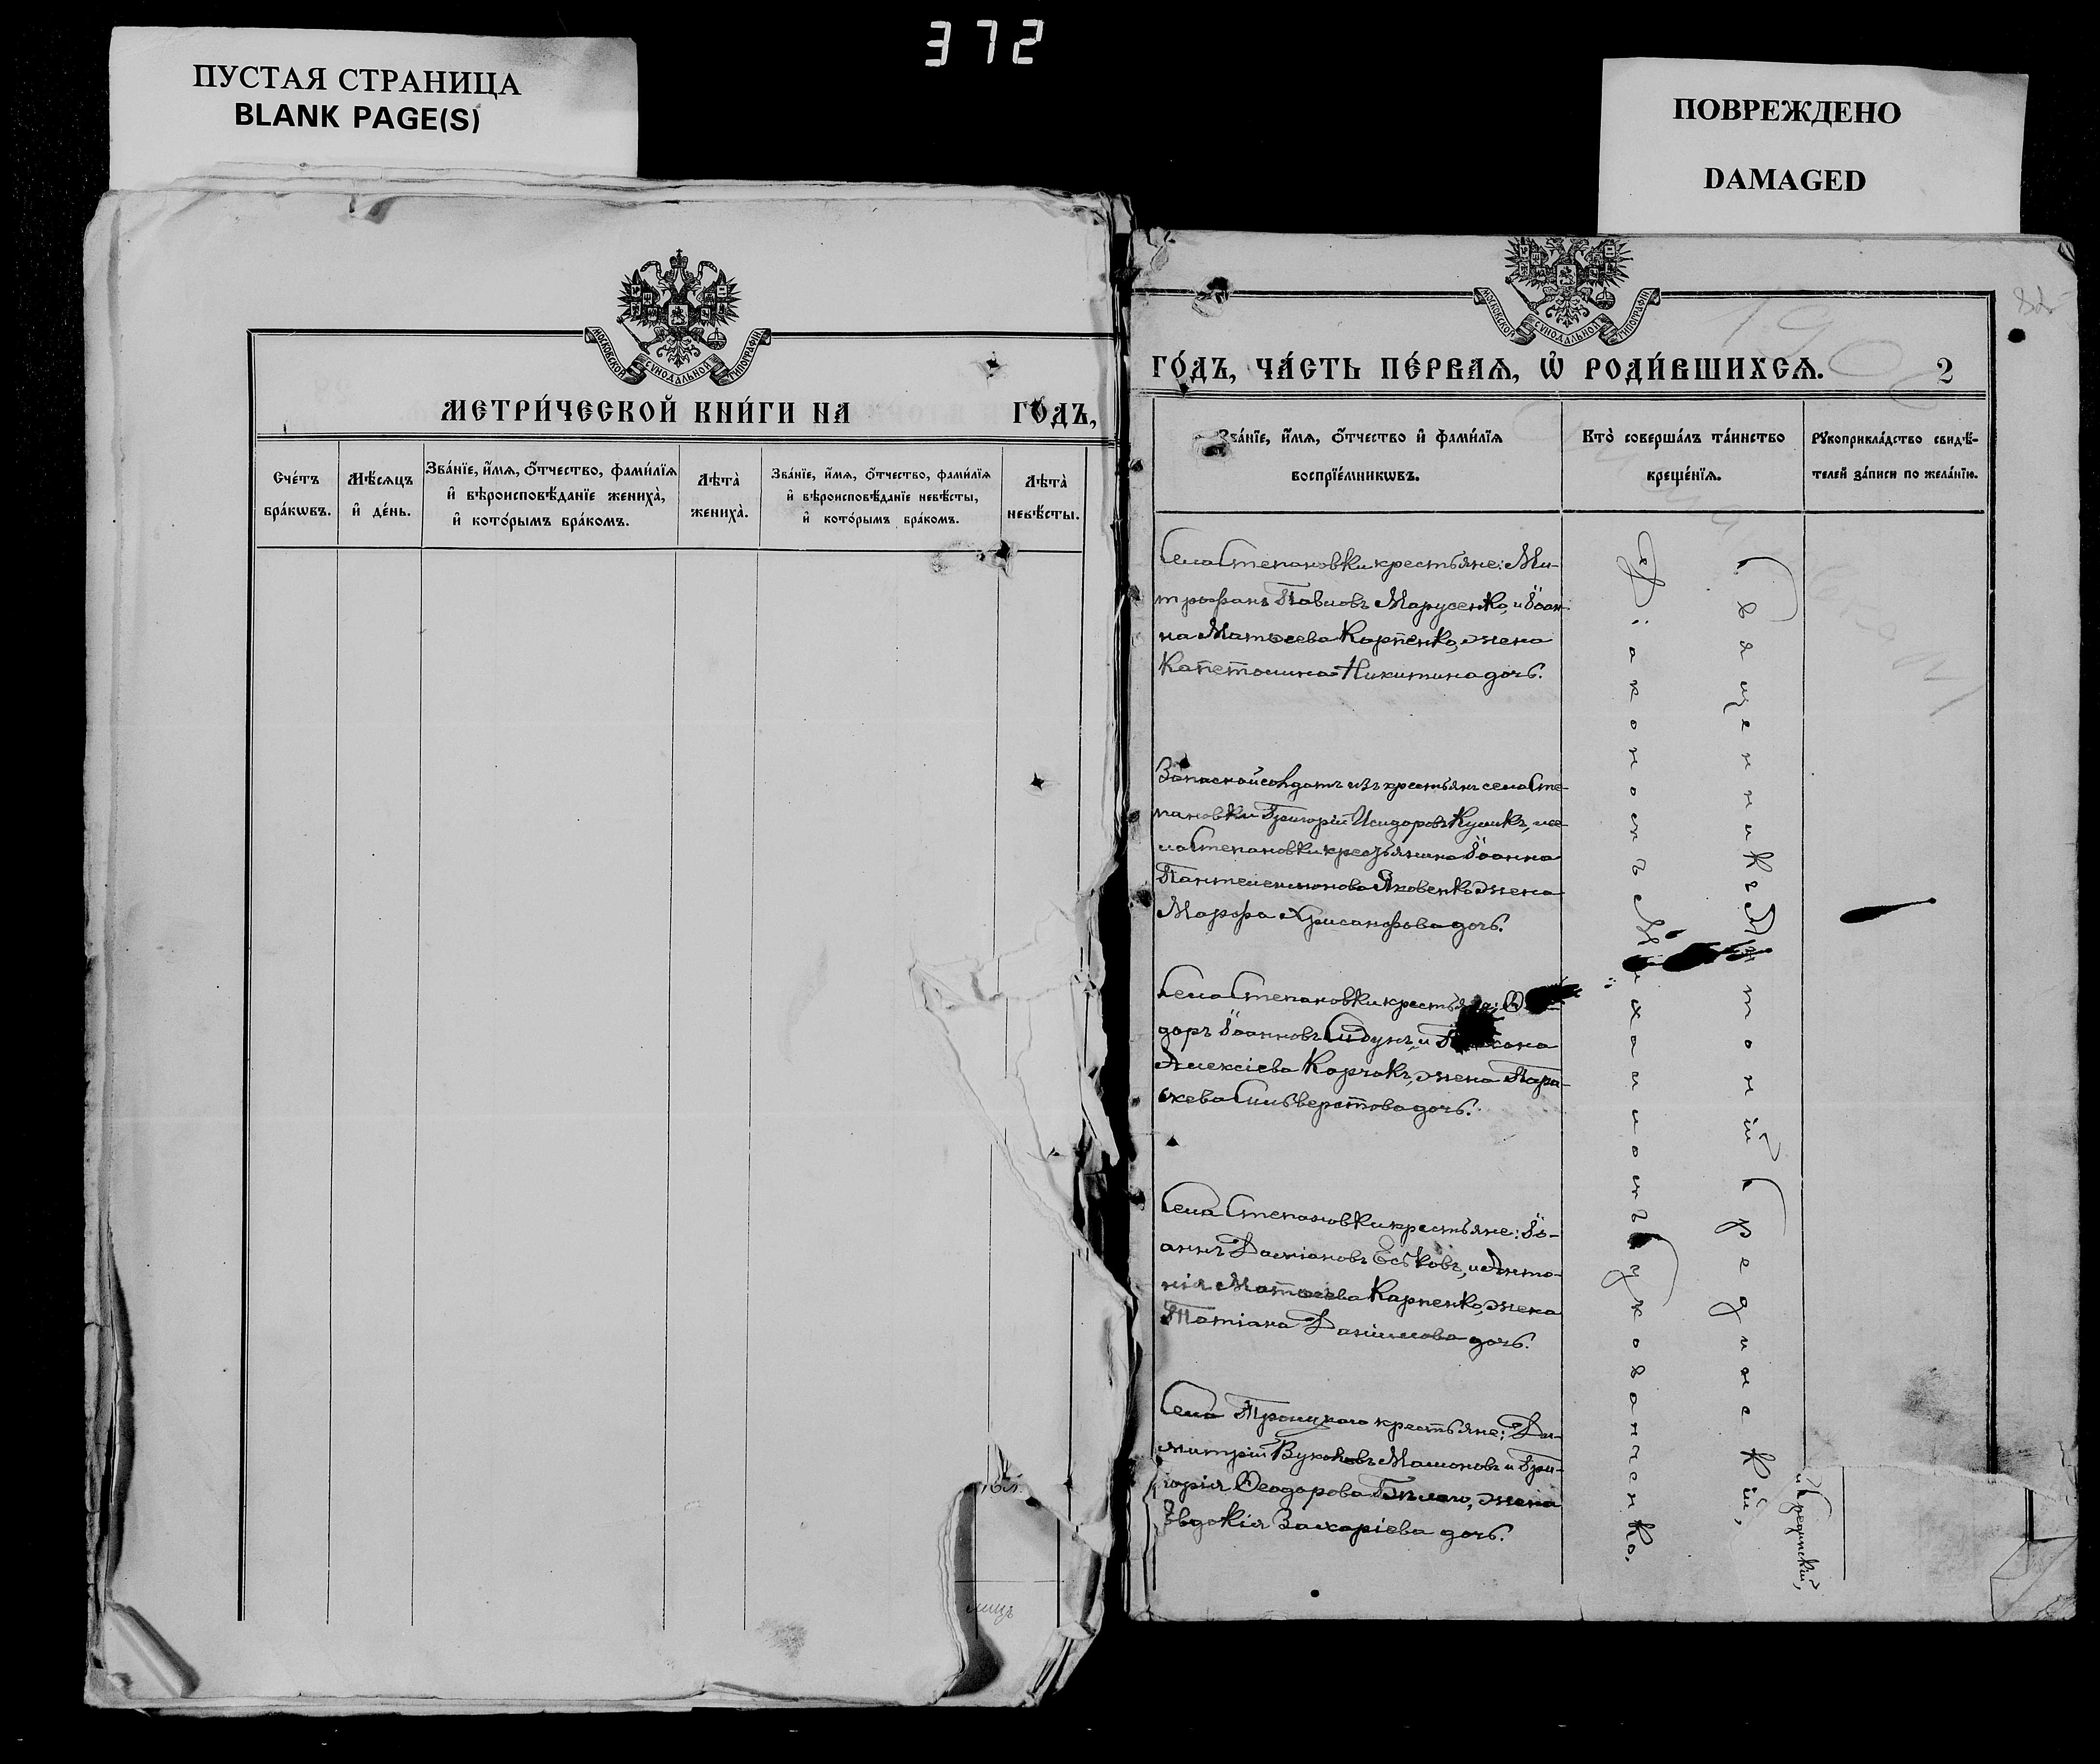 372
ПУСТАЯ СТРАНИЦА
BLANK PAGE(S)
ПОВРЕЖДЕНО
DAMAGED
МОСКОВСКОЙ СѴНОДАЛЬНОЙ ТИПОГРАФІИ
МЕТРИ́ЧЕСКОЙ КНИ́ГИ НА ГО́ДЪ,
Сче́тъ
бра́кѡвъ.
Мѣ́сѧцъ
и҆ де́нь.
Зва́нїе, и҆́мѧ, ѻ҆́тчество, фами́лїѧ
и҆ вѣроисповѣ́данїе жениха̀,
и҆ кото́рымъ бра́комъ.
Лѣта̀
жениха̀.
Зва́нїе, и҆́мѧ, ѻ҆́тчество, фами́лїѧ
и҆ вѣроисповѣ́данїе невѣ́сты,
и҆ кото́рымъ бра́комъ.
Лѣта̀
невѣ́сты.
лицъ
МОСКОВСКОЙ СѴНОДАЛЬНОЙ ТИПОГРАФІИ
ГО́ДЪ, ЧА́СТЬ ПЕ́РВАѦ, Ѡ҆ РОДИ́ВШИХСѦ. 2
Зва́нїе, и҆́мѧ, ѻ҆́тчество и҆ фами́лїѧ
воспрїе́мникѡвъ.
Кто̀ соверша́лъ та́инство
креще́нїѧ.
Рꙋкоприкла́дство свидѣ́-
телей за́писи по жела́нїю.
Села Степановки крестьяне: Ми-
трофанъ Павловъ Марусенко, и Іоан-
на Матѳеева Карпенко, жена
Капетолина Никитина дочь.
Запасной солдатъ изъ крестьянъ села Сте-
пановки Григорій Исидоровъ Куликъ, и се-
ла Степановки крестьянина Іоанна
Пантелеимонова Яковенко жена
Марфа Хрисанфова дочь.
Села Степановки
доръ Іоанновъ и
Алексіева Корчакъ, жена Пара-
скева Сильверстова дочь.
Села Степановки крестьяне: Іо-
аннъ Даміановъ Еськовъ, и Анто-
нія Матѳеева Карпенко, жена
Татіана Даніилова дочь.
Села Троицкаго крестьяне: Ди-
митрій Мамоновъ и Гри-
горія Ѳеодорова Бѣлаго, жена
Евдокія Захаріева дочь.
Священникъ Антоній Срединскій,
Діаконъ Михаилъ Бухованченко.
Срединскій,